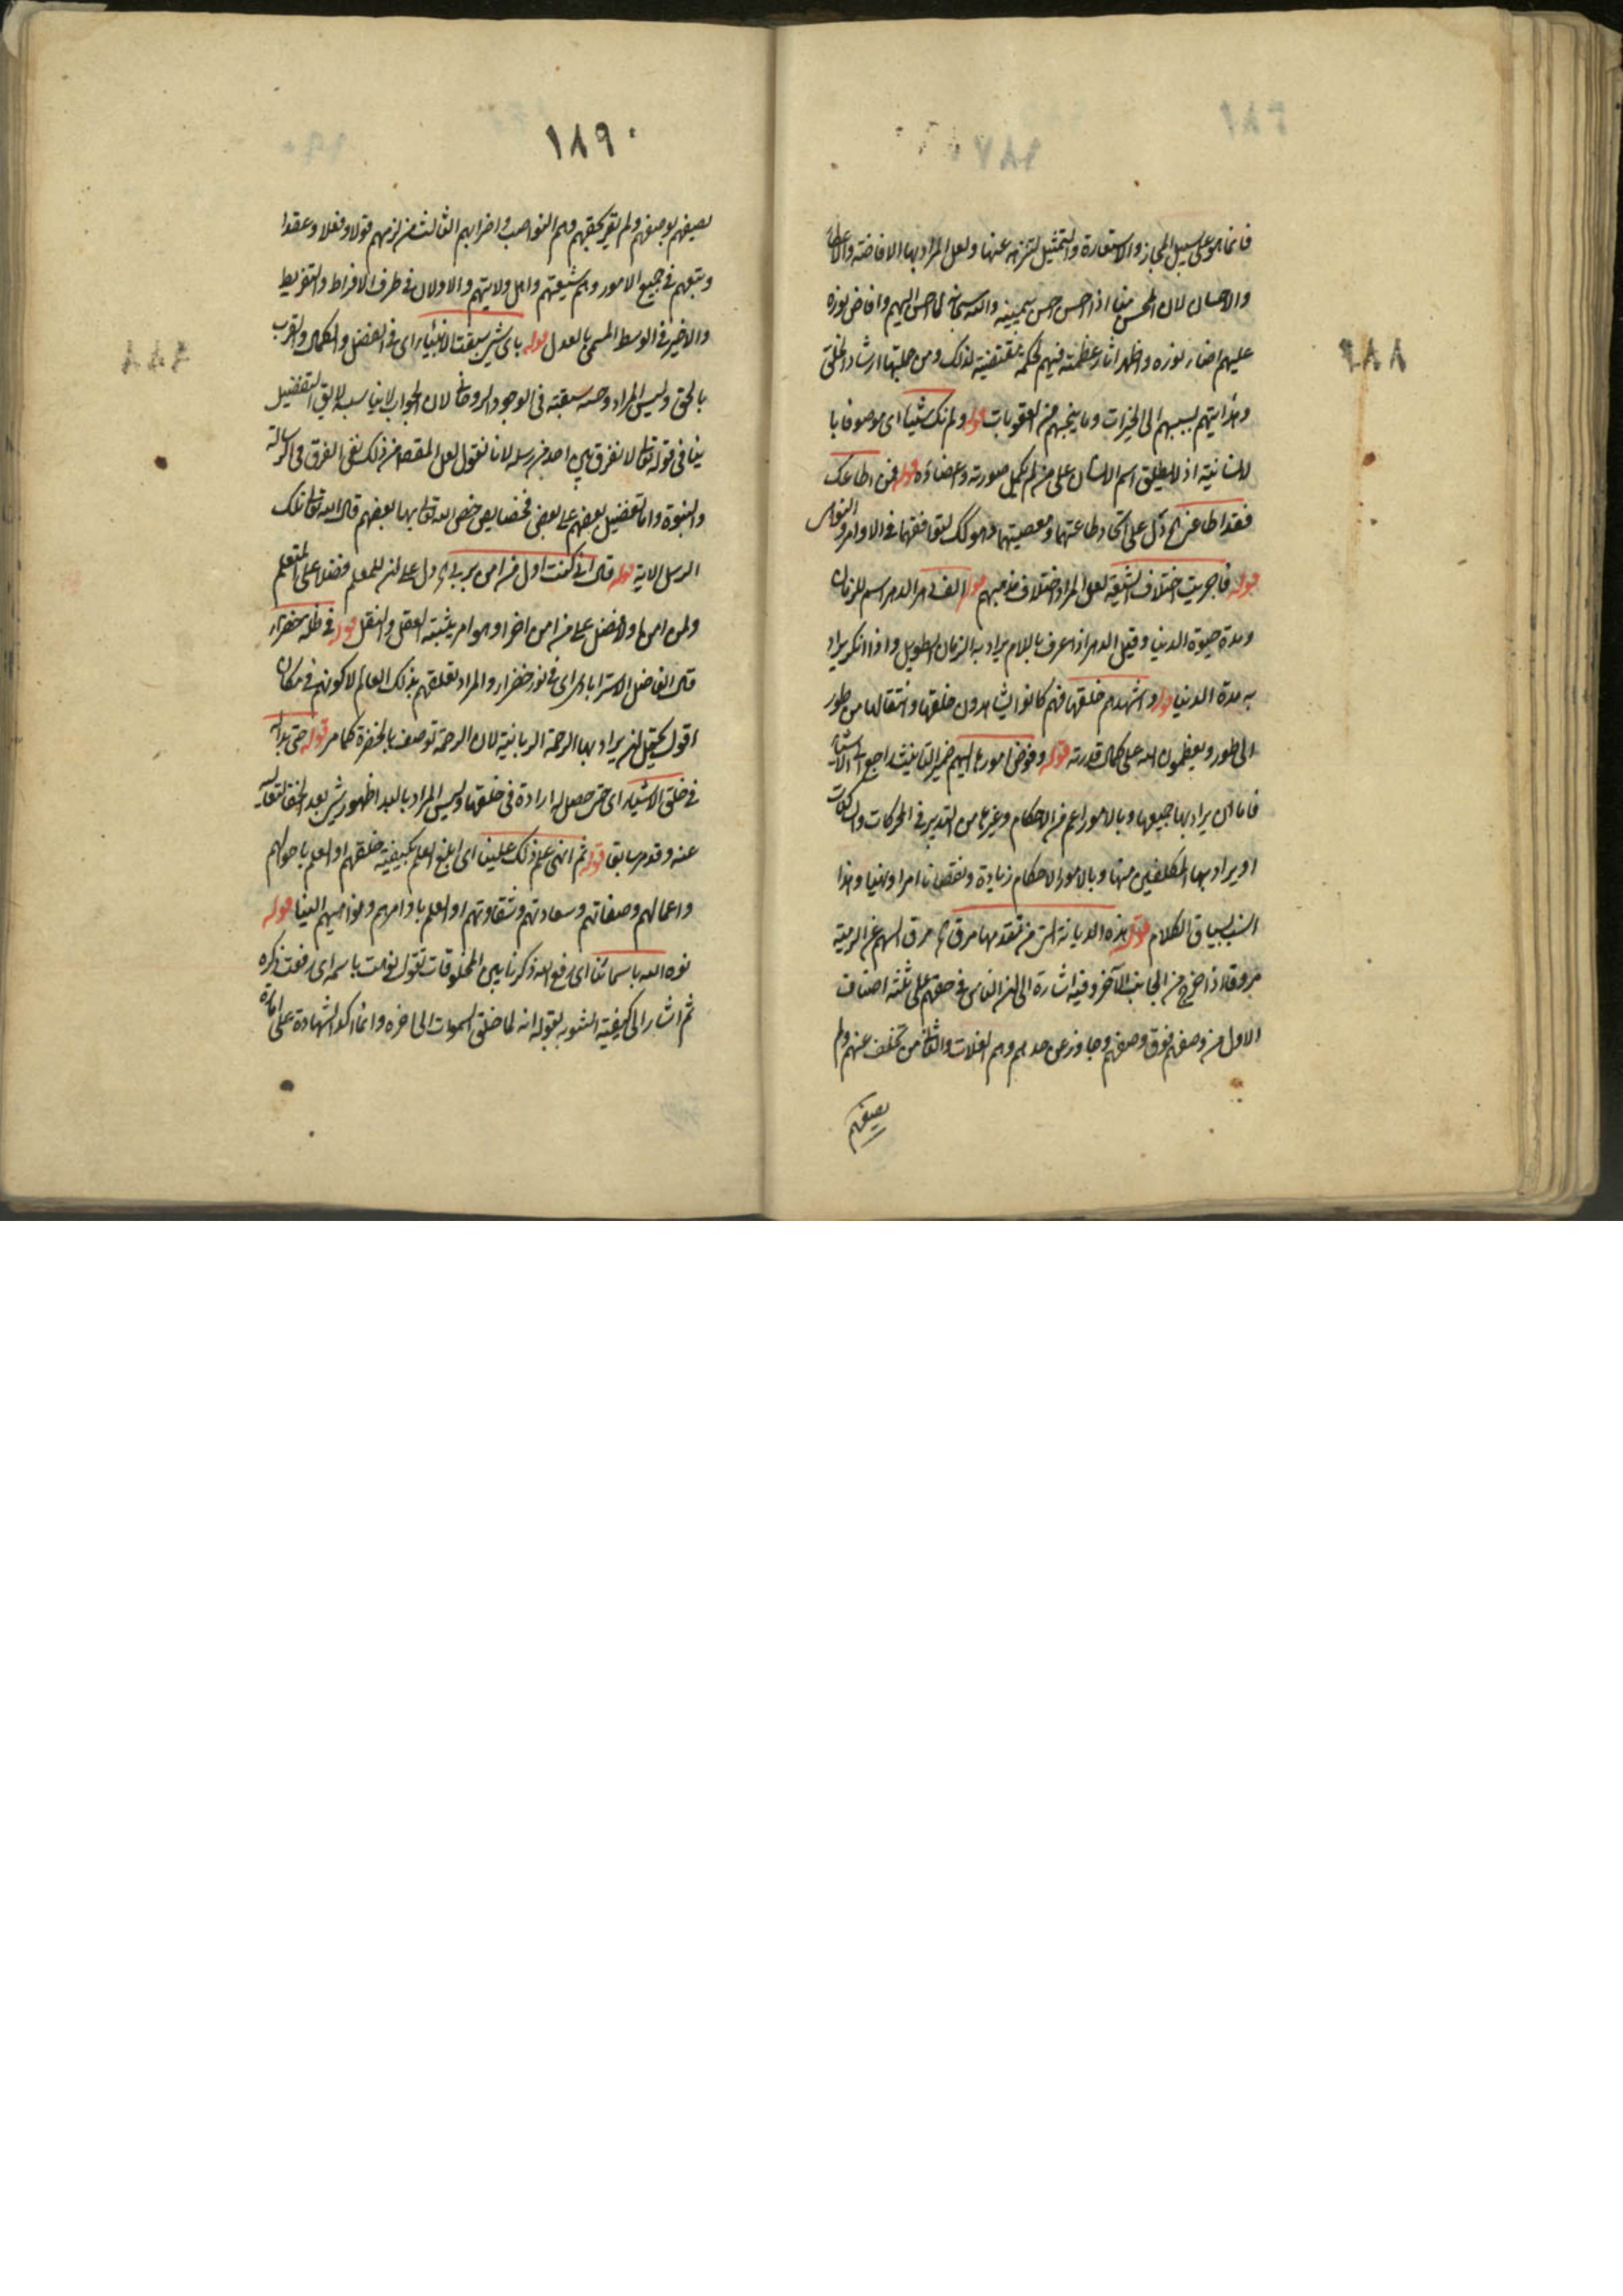 فانما هو على سبيل المجاز والاستعارة والتمثيل لتنزهه عنها ولعل المراد بها الافاضة والاعطاء
والاحسان لان المحسن منا اذا احسن احسن بيمينه والله سبحانه لما احسن اليهم وافاض نوره
عليهم اضاء نوره واظهر اثار عظمته فيهم لحكمة مقتضية لذلك ومن جملتها ارشاد الخلق
وهدايتهم بسببهم الى الخيرات وما ينجيهم من العقوبات قوله ولم تك شيئا اى موصوفا با
لانسانية اذ لا يطلق اسم الانسان على من لم يكمل صورته واعضاؤه قوله فمن اطاعك
فقد اطاعنى الخ دل على اتحاد طاعتهما ومعصيتهما وهو كك لتوافقهما فى الاوامر والنواهى
قوله فاجريت اختلاف الشيعة لعل المراد اختلاف مذهبهم قوله الف دهر الدهر اسم للزمان
ومدة حيوة الدنيا وقيل الدهر اذا عرف باللام يراد به الزمان الطويل واذا انكر يراد
به مدة الدنيا قوله واشهدهم خلقها فهم كانوا يشاهدون خلقها وانتقالها من طور
الى طور ويعظمون الله على كمال قدرته قوله وفوض امورها اليهم ضمير التانيث راجع الى الاشياء
فاما ان يراد بها جميعها وبالامور اعم من الاحكام وغيرها من التدبير فى الحركات والسكنات
او يراد بها المكلفين منها وبالامور الاحكام زيادة ونقصانا امرا ونهيا وهذا
انسب بسياق الكلام قوله هذه الديانة التى من تقدمها مرق الخ مرق السهم عن الرمية
مروقا اذا خرج من الجانب الآخر وفيه اشارة الى ان الناس فى حقهم على ثلثة اصناف
الاول من وصفهم فوق وصفهم وجاوز عن حدهم وهم الغلات والثانى من تخلف عنهم ولم
يصفهم
١٨٩
يصفهم بوصفهم ولم يقر بحقهم وهم النواصب واضرابهم الثالث من لزمهم قولا وفعلا وعقدا
وتبعهم فى جميع الامور وهم شيعتهم واهل ولايتهم والاولان فى طرف الافراط والتفريط
والاخير فى الوسط المسمى بالعدل قوله باى شىء سبقت الانبياء اى فى الفضل والكمال والقرب
بالحق وليس المراد وجه سبقته فى الوجود الروحانى لان الجواب لا يناسبه لا يق التفضيل
ينافى قوله تعالى لا نفرق بين احد من رسله لانا نقول لعل المقصود من ذلك نفى الفرق فى الرسالة
والنبوة واما تفضيل بعضهم على بعض فخصايص خص الله تعالى بها بعضهم قال الله تعالى تلك
الرسل الاية قوله قال انى كنت اول من امن بربى الخ دل على ان للمعلم فضلا على المتعلم
ولمن امن اولا فضل على من امن اخرا وهو امر يثبته العقل والنقل قوله فى ظلة خضراء
قال الفاضل الاسترابادى اى فى نور خضراء والمراد تعلقهم بذلك العالم لا كونهم فى مكان
اقول يحتمل ان يراد بها الرحمة الربانية لان الرحمة توصف بالخضرة كما مر قوله حتى بدا له
فى خلق الاشياء اى حتى حصل له ارادة فى خلقها وليس المراد بالبدا ظهور شىء بعد الخفا لتعاليه
عنه وقد مر سابقا قوله ثم انهى علم ذلك علينا اى ابلغ العلم بكيفية خلقهم او العلم باحوالهم
واعمالهم وصفاتهم وسعادتهم وشقاوتهم او العلم باوامرهم ونواهيهم الينا قوله
نوه الله باسمائنا اى رفع الله ذكرنا بين المخلوقات تقول نوهت باسمه اى رفعت ذكره
ثم اشار الى كيفية التنويه بقوله انه لما خلق السموات الى اخره وانما كد الشهادة على امارة